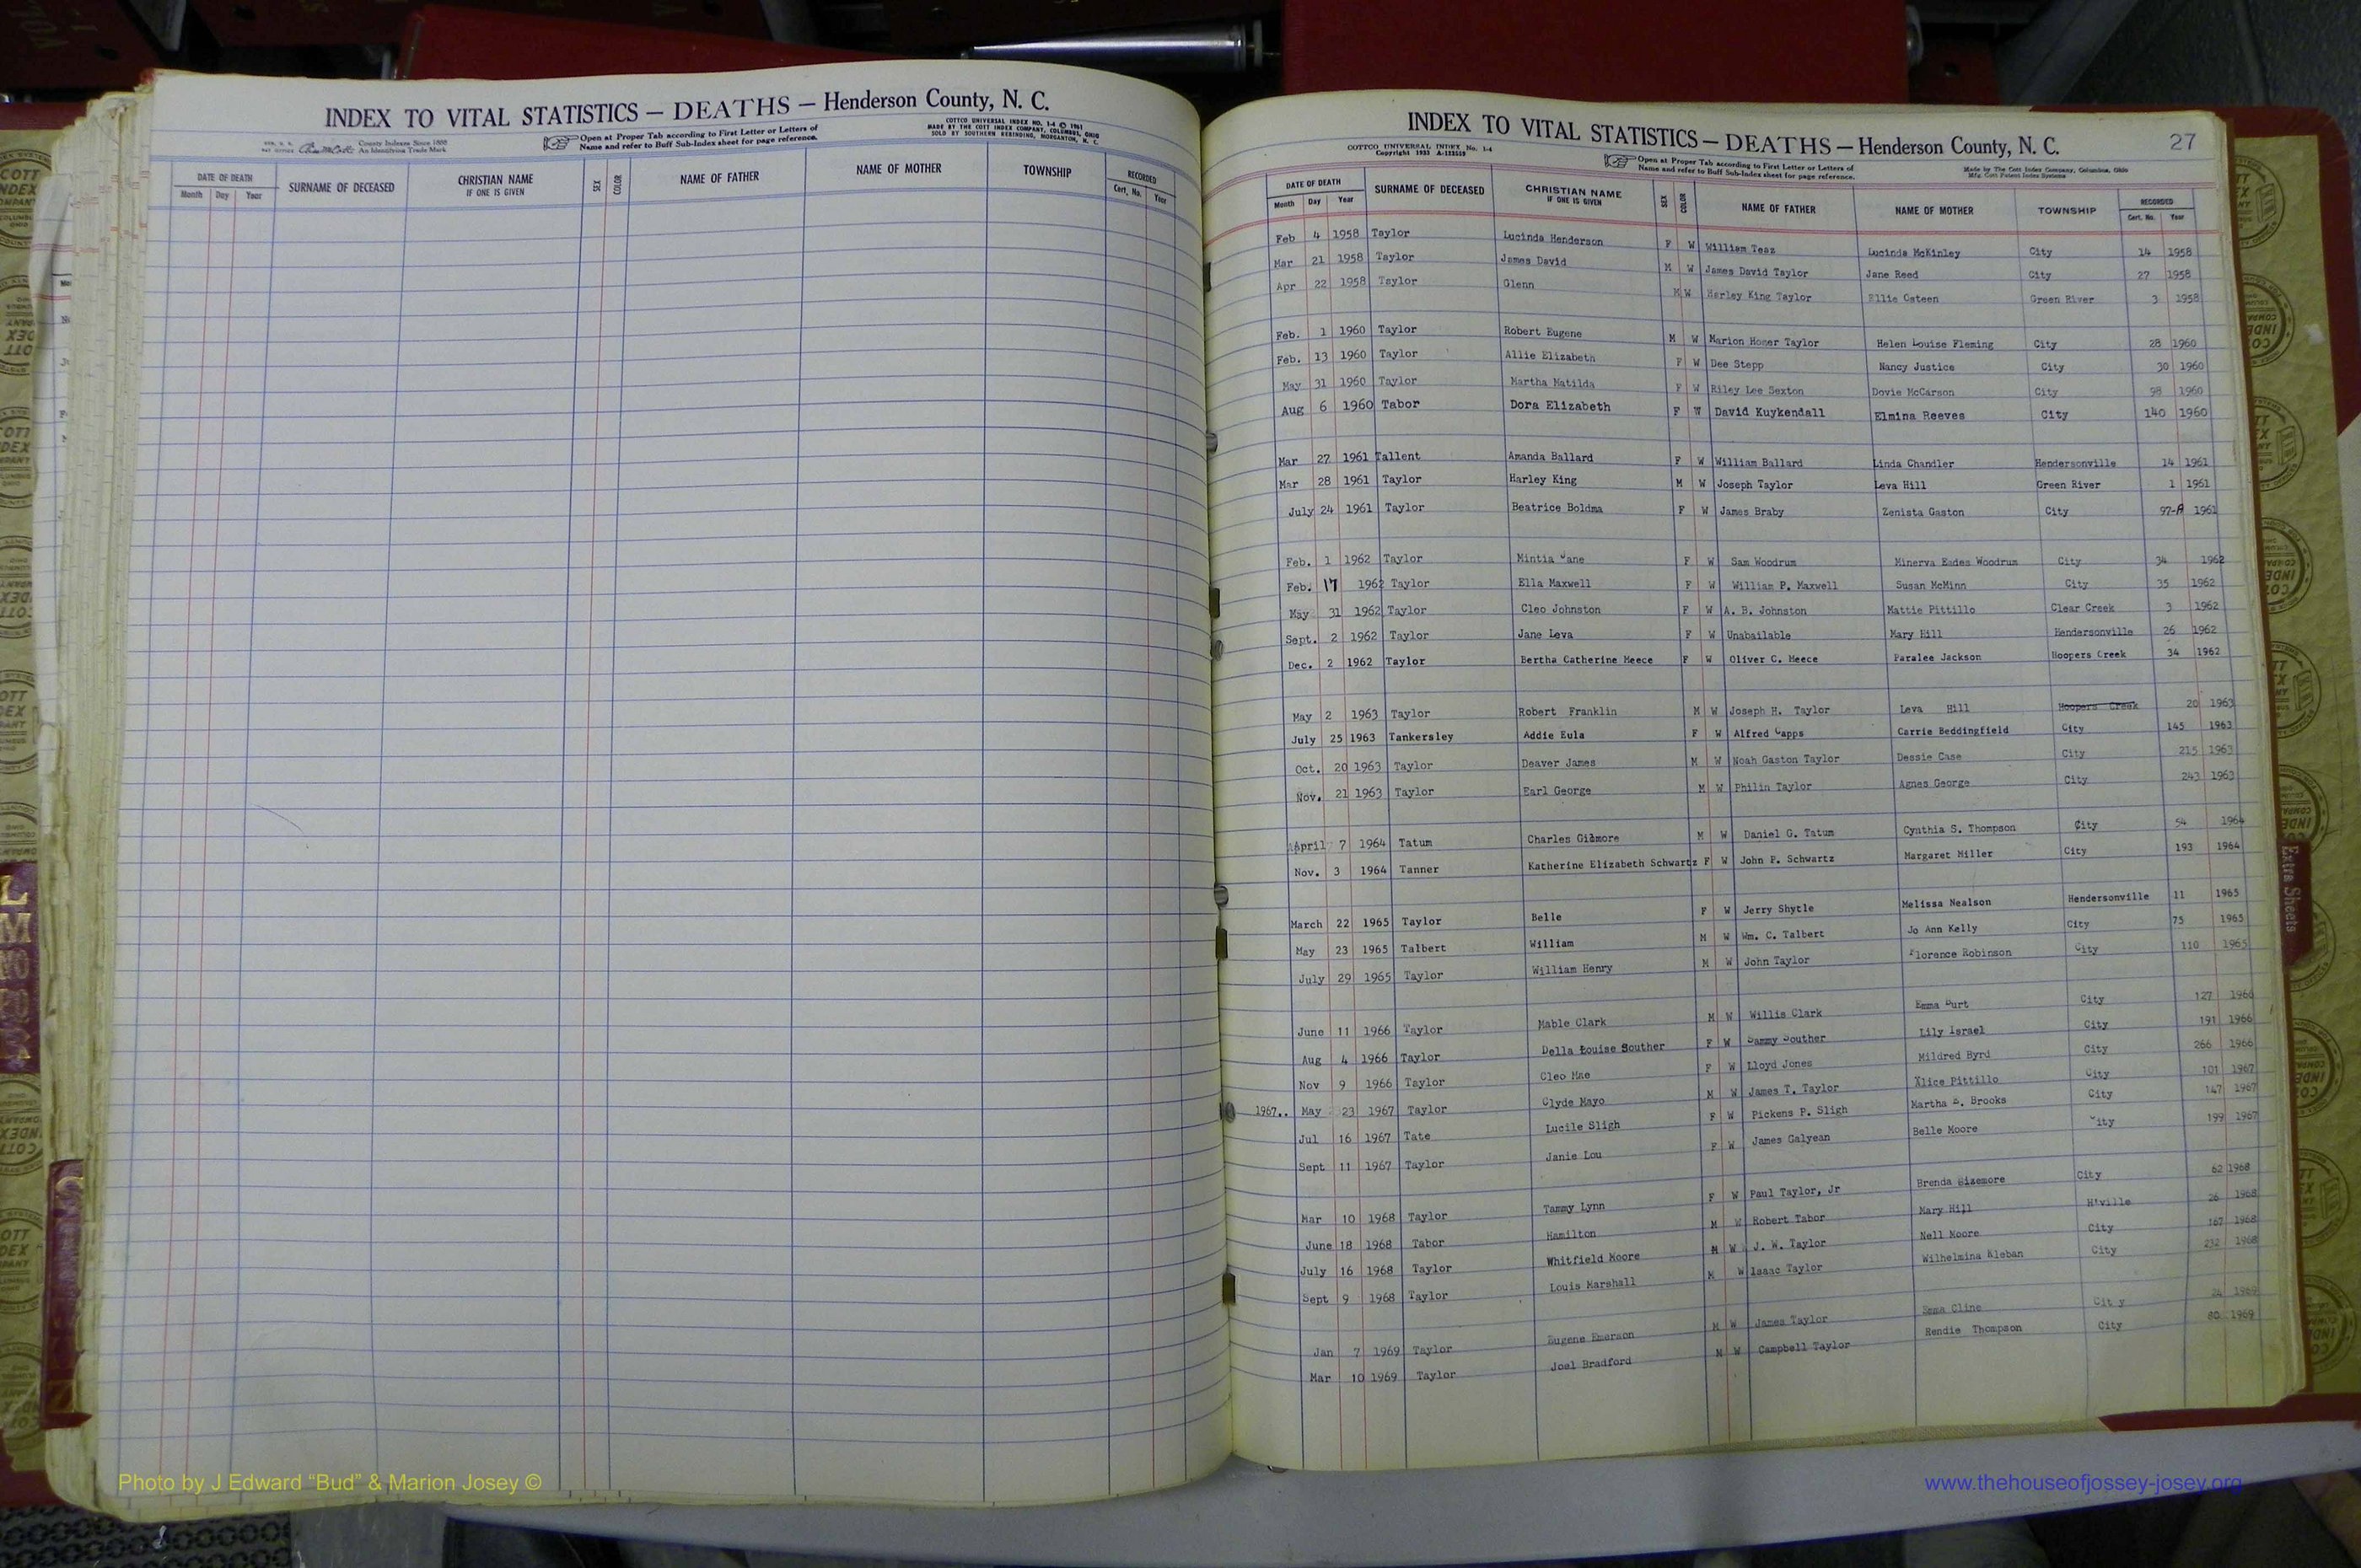 INDEX TO VITAL STATISTICS — DEATHS — Henderson County, N. C.
County Indexes Since 1888
An Identifying Trade Mark
Open at Proper Tab according to First Letter or Letters of
Name and refer to Buff Sub-Index sheet for page reference.
COTTCO UNIVERSAL INDEX NO. 1-4 © 1961
MADE BY THE COTT INDEX COMPANY, COLUMBUS, OHIO
SOLD BY SOUTHERN REBINDING, MORGANTON, N. C.
DATE OF DEATH Month Day Year SURNAME OF DECEASED CHRISTIAN NAME IF ONE IS GIVEN SEX COLOR NAME OF FATHER NAME OF MOTHER TOWNSHIP RECORDED Cert. No. Year
INDEX TO VITAL STATISTICS — DEATHS — Henderson County, N. C. 27
COTTCO UNIVERSAL INDEX No. 1-4
Open at Proper Tab according to First Letter or Letters of
Name and refer to Buff Sub-Index sheet for page reference.
Made by The Cott Index Company, Columbus, Ohio
DATE OF DEATH Month Day Year SURNAME OF DECEASED CHRISTIAN NAME IF ONE IS GIVEN SEX COLOR NAME OF FATHER NAME OF MOTHER TOWNSHIP RECORDED Cert. No. Year
Feb 4 1958 Taylor Lucinda Henderson F W William Teaz Lucinda McKinley City 14 1958
Mar 21 1958 Taylor James David M W James David Taylor Jane Reed City 27 1958
Apr 22 1958 Taylor Glenn M W Harley King Taylor Ellie Osteen Green River 3 1958
Feb. 1 1960 Taylor Robert Eugene M W Marion Homer Taylor Helen Louise Fleming City 28 1960
Feb. 13 1960 Taylor Allie Elizabeth F W Dee Stepp Nancy Justice City 30 1960
May 31 1960 Taylor Martha Matilda F W Riley Lee Sexton Dovie McCarson City 98 1960
Aug 6 1960 Tabor Dora Elizabeth F W David Kuykendall Elmina Reeves City 140 1960
Mar 27 1961 Tallent Amanda Ballard F W William Ballard Linda Chandler Hendersonville 14 1961
Mar 28 1961 Taylor Harley King M W Joseph Taylor Leva Hill Green River 1 1961
July 24 1961 Taylor Beatrice Boldma F W James Braby Zenista Gaston City 97-A 1961
Feb. 1 1962 Taylor Mintia Jane F W Sam Woodrum Minerva Eades Woodrum City 34 1962
Feb. 17 1962 Taylor Ella Maxwell F W William P. Maxwell Susan McMinn City 35 1962
May 31 1962 Taylor Cleo Johnston F W A. B. Johnston Mattie Pittillo Clear Creek 3 1962
Sept. 2 1962 Taylor Jane Leva F W Unabailable Mary Hill Hendersonville 26 1962
Dec. 2 1962 Taylor Bertha Catherine Meece F W Oliver C. Meece Paralee Jackson Hoopers Creek 34 1962
May 2 1963 Taylor Robert Franklin M W Joseph H. Taylor Leva Hill Hoopers Creek 20 1963
July 25 1963 Tankersley Addie Eula F W Alfred Capps Carrie Beddingfield City 145 1963
Oct. 20 1963 Taylor Deaver James M W Noah Gaston Taylor Dessie Case City 215 1963
Nov. 21 1963 Taylor Earl George M W Philin Taylor Agnes George City 243 1963
April 7 1964 Tatum Charles Gilmore M W Daniel G. Tatum Cynthia S. Thompson City 54 1964
Nov. 3 1964 Tanner Katherine Elizabeth Schwartz F W John P. Schwartz Margaret Miller City 193 1964
March 22 1965 Taylor Belle F W Jerry Shytle Melissa Nealson Hendersonville 11 1965
May 23 1965 Talbert William M W Wm. C. Talbert Jo Ann Kelly City 75 1965
July 29 1965 Taylor William Henry M W John Taylor Florence Robinson City 110 1965
June 11 1966 Taylor Mable Clark M W Willis Clark Emma Burt City 127 1966
Aug 4 1966 Taylor Della Louise Souther F W Sammy Souther Lily Israel City 191 1966
Nov 9 1966 Taylor Cleo Mae F W Lloyd Jones Mildred Byrd City 266 1966
1967.. May 23 1967 Taylor Clyde Mayo M W James T. Taylor Alice Pittillo City 101 1967
Jul 16 1967 Tate Lucile Sligh F W Pickens P. Sligh Martha Brooks City 147 1967
Sept 11 1967 Taylor Janie Lou F W James Galyean Belle Moore City 199 1967
Mar 10 1968 Taylor Tammy Lynn F W Paul Taylor, Jr Brenda Sizemore City 62 1968
June 18 1968 Tabor Hamilton M W Robert Tabor Mary Hill H'ville 26 1968
July 16 1968 Taylor Whitfield Moore M W J. W. Taylor Nell Moore City 167 1968
Sept 9 1968 Taylor Louis Marshall M W Isaac Taylor Wilhelmina Kleban City 232 1968
Jan 7 1969 Taylor Eugene Emerson M W James Taylor Emma Cline City 24 1969
Mar 10 1969 Taylor Joel Bradford M W Campbell Taylor Rendie Thompson City 80 1969
Extra Sheets
Photo by J Edward “Bud” & Marion Josey ©
www.thehouseofjossey-josey.org